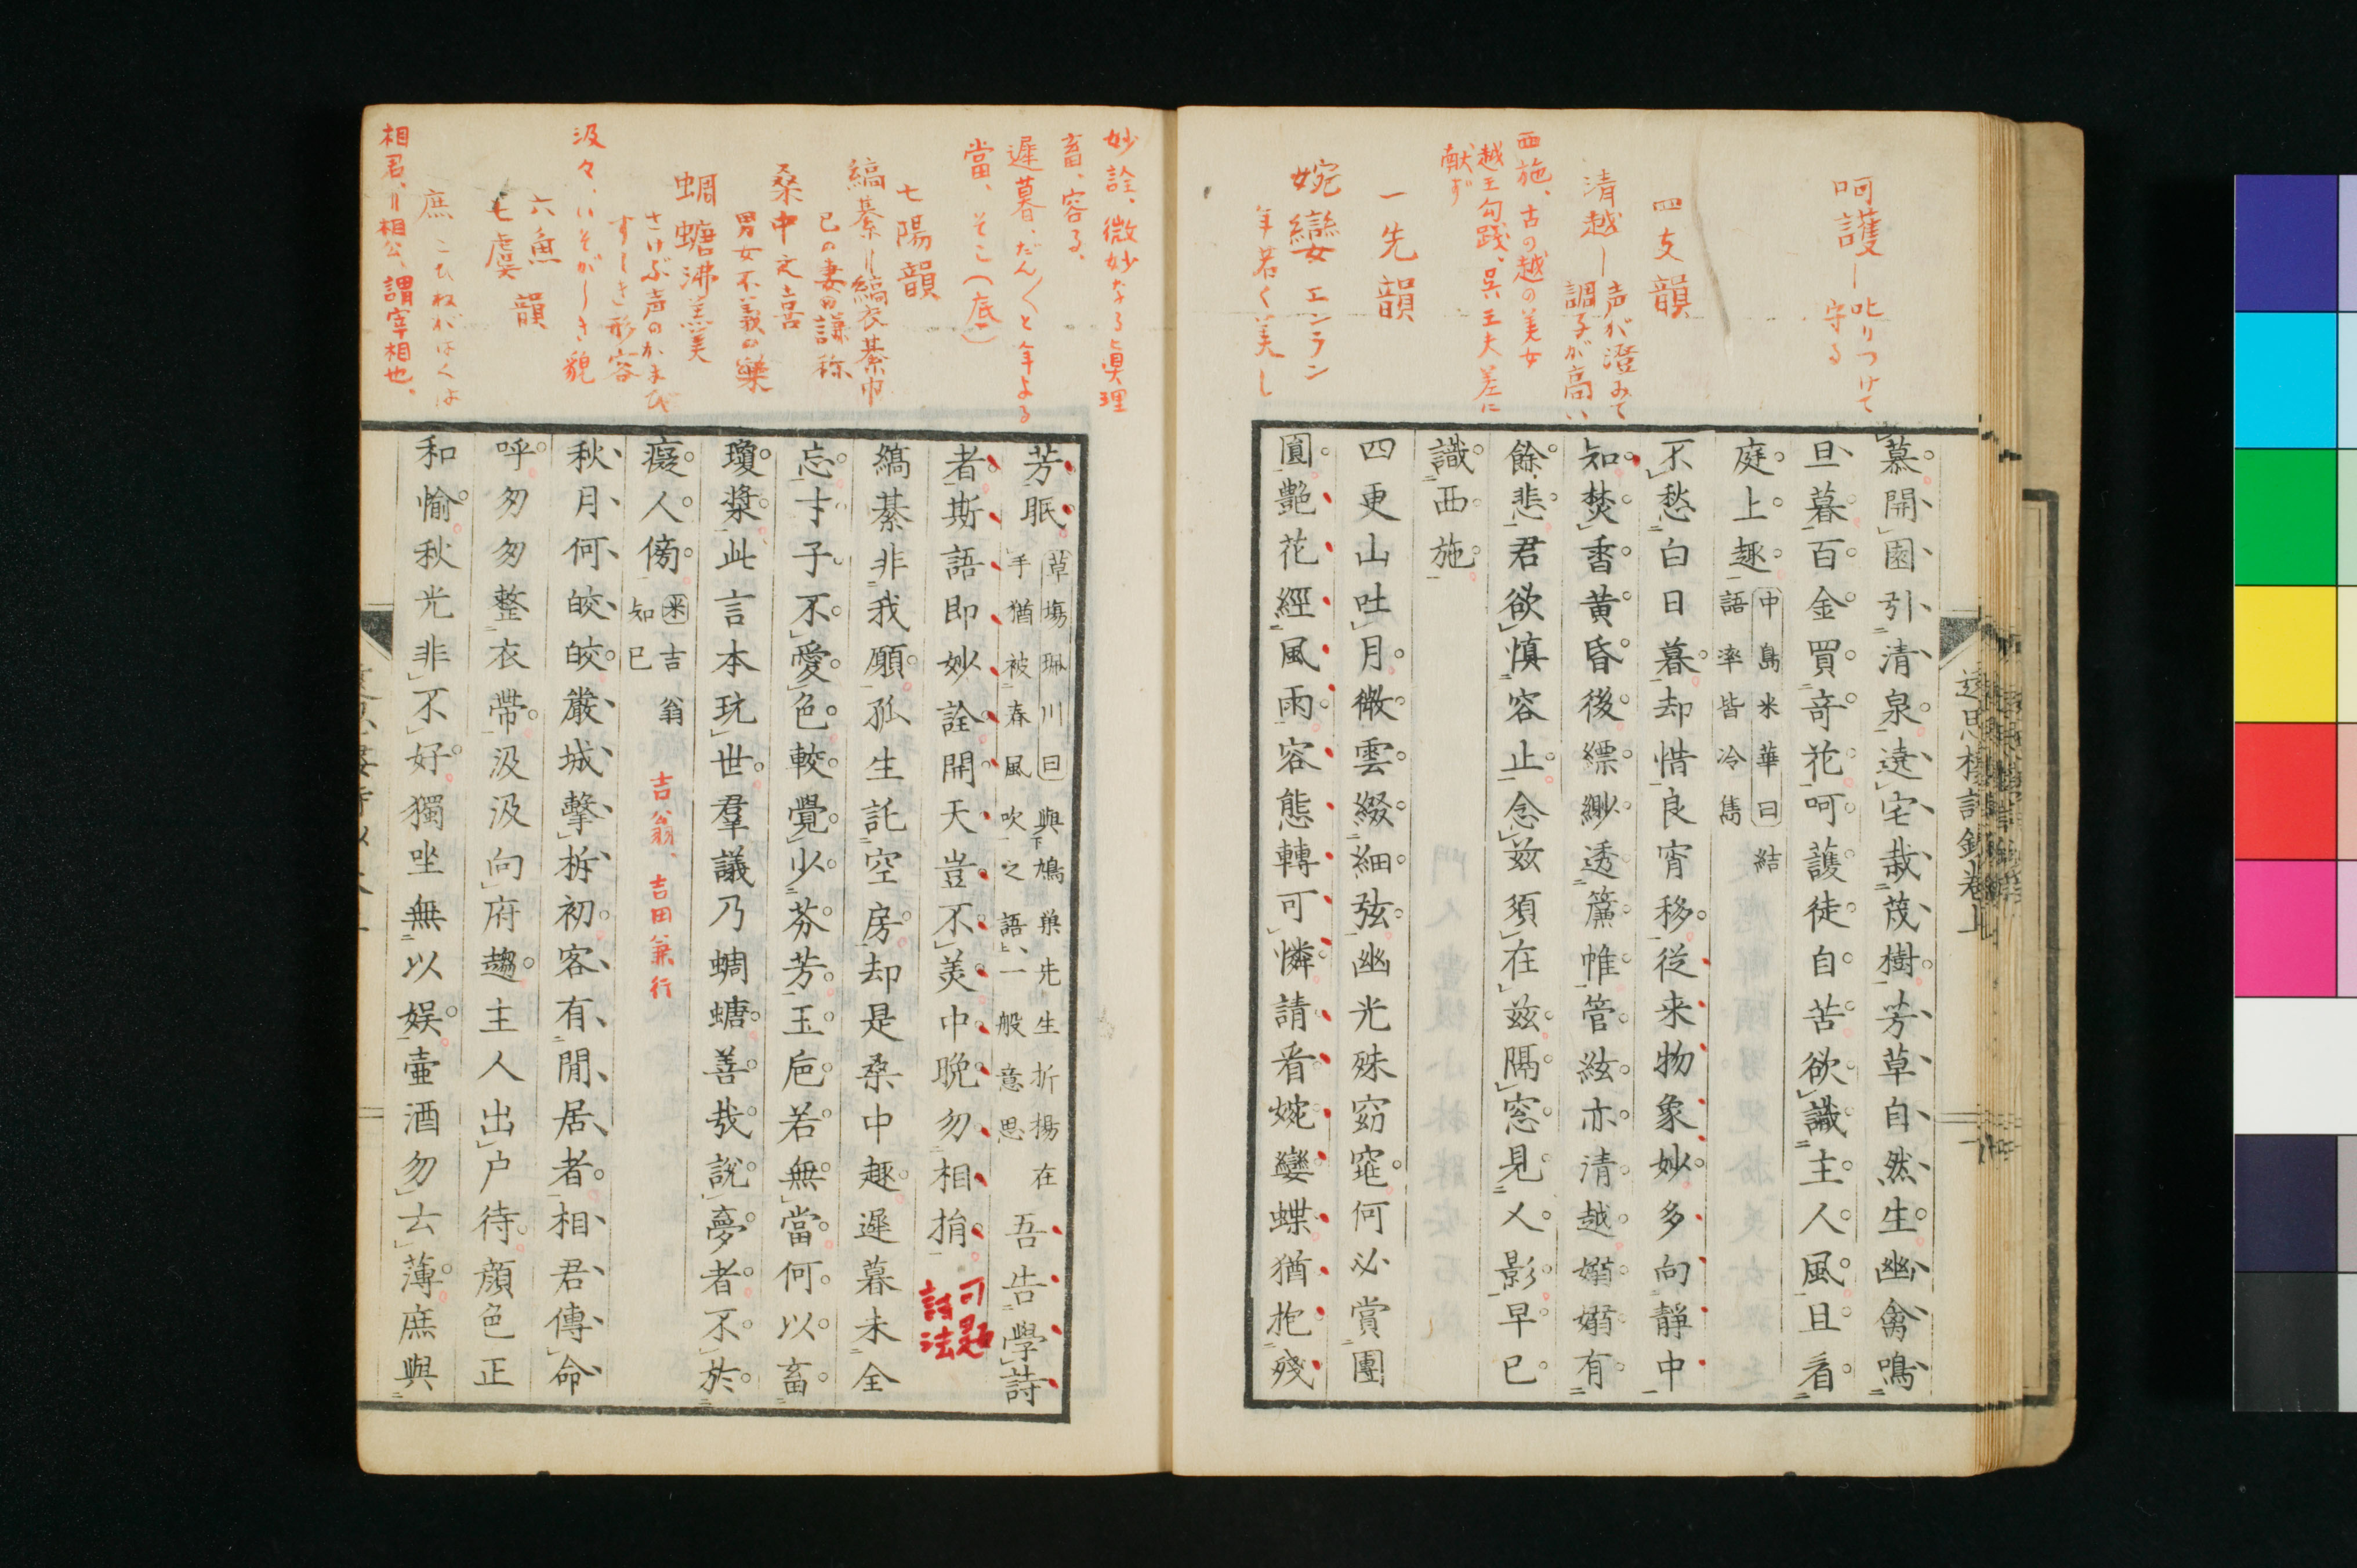 呵護ー叱りつけて
守る
四支韻
清越ー声が澄みて
調子が高い
西施、古の越の美女
越王勾踐、呉王夫差に
献ず
一先韻
婉孌 エンラン
年若く美し
慕開園引清泉遶宅栽茂樹芳草自然生幽禽鳴
旦暮百金買奇花呵護徒自苦欲識主人風且看
庭上趣
中島米華曰結
語率皆冷雋
不愁白日暮却惜良宵移從来物象妙多向靜中
知焚香黄昏後縹緲透簾帷管絃亦清越嫋嫋有
餘悲君欲慎容止念茲須在茲隔窓見人影早已
識西施
四更山吐月微雲綴細弦幽光殊窈窕何必賞團
圓艶花經風雨容態轉可憐請看婉孌蝶猶抱殘
妙詮、微妙なる眞理
畜、容る、
遲暮、だん〱と年よる
當、そこ(底)
七陽韻
縞綦〃縞衣綦巾
己の妻の謙称
桑中之喜
男女不義の樂
蜩螗沸羹
さけぶ声のかまび
すしき形容
汲々、いそがしき貌
六魚韻
七虞
庶 こひねがはくは
相君、〃相公、謂宰相也。
芳眠
草場珮川曰與鳩巣先生折楊在
手猶被春風吹之語一般意思
吾告學詩
者斯語即妙詮開天豈不美中晩勿相捐
可題
詩法
縞綦非我願孤生託空房却是桑中趣遲暮未全
忘才子不愛色較覺少芬芳玉巵若無當何以畜
瓊漿此言本玩世羣議乃蜩螗善哉說夢者不於
癡人傍
米吉翁
知已
吉翁、吉田兼行
秋月何皎皎嚴城擊柝初客有閒居者相君傳命
呼匆匆整衣帶汲汲向府趨主人出戸待顏色正
和愉秋光非不好獨坐無以娯壷酒勿去薄庶與